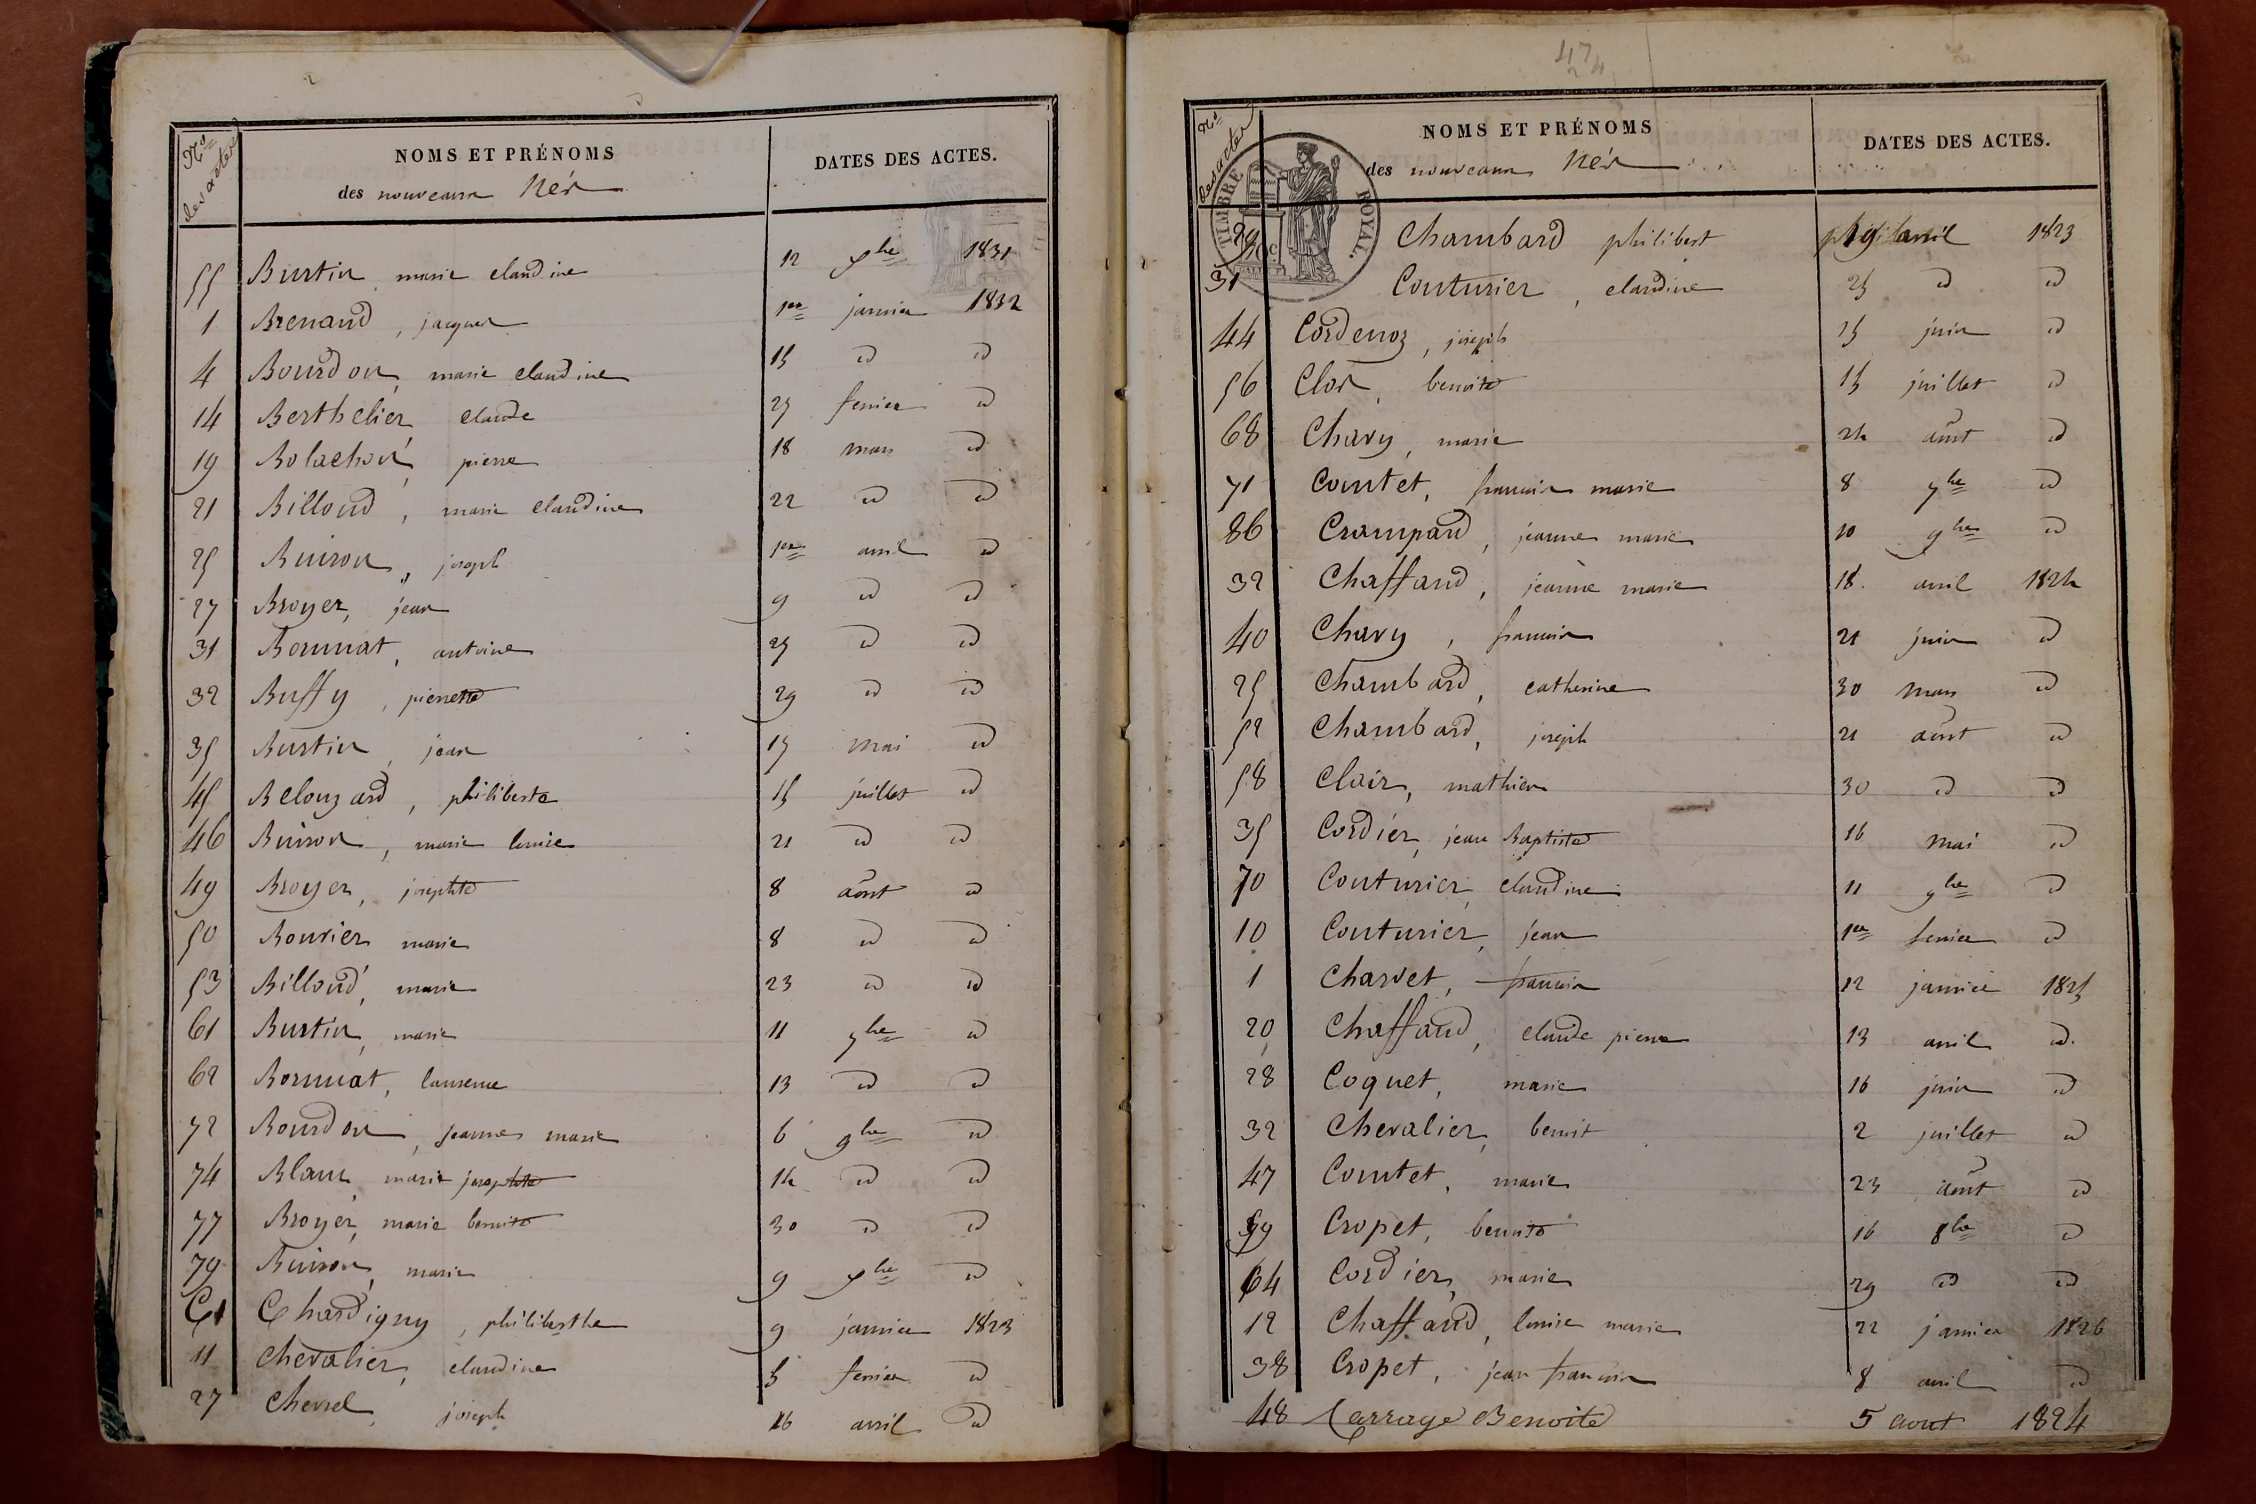 Nos des actes
NOMS ET PRÉNOMS
des nouveaux Nés
DATES DES ACTES.
55 Burtin marie claudine 12 xbre 1831
1 Brenaud, jacques 1er janvier 1832
4 Bourdon, marie claudine 15 id id
14 Berthelier claude 25 fevrier id
19 Bolachon, pierre 18 mars id
21 Billoud, marie claudine 22 id id
25 Buiron, joseph 1er avril id
27 Broyer, jean 9 id id
31 Bonnat, antoine 25 id id
32 Buffy, pierrette 29 id id
35 Burtin, jean 15 mai id
45 Belouzard, philiberte 15 juillet id
46 Buiron, marie louise 21 id id
49 Broyer, josephte 8 août id
50 Bouvier marie 8 id id
53 Billoud, marie 23 id id
61 Burtin, marie 11 7bre id
62 Bonnat, laurence 13 id id
72 Bourdon, jeanne marie 6 9bre id
74 Blanc, marie josephte 14 id id
77 Broyer, marie benoite 30 id id
79 Buiron, marie 9 xbre id
C1 Chardigny, philiberthe 9 janvier 1823
11 Chevalier, claudine 5 fevrier id
27 Chevrel, joseph 16 avril id
474
Nos des actes
NOMS ET PRÉNOMS
des nouveaux Nés
DATES DES ACTES.
TIMBRE ROYAL.
29 Chambard philibert 19 avril 1823
31 Couturier, claudine 25 id id
44 Cordenoz, joseph 15 juin id
56 Clos, benoite 15 juillet id
68 Chavy, marie 24 août id
71 Comtet, francois marie 8 7bre id
86 Crampaud, jeanne marie 10 9bre id
32 Chaffaud, jeanne marie 18 avril 1824
40 Chavy, francois 21 juin id
25 Chambard, catherine 30 mars id
52 Chambard, joseph 21 août id
58 Clair, mathieu 30 id id
35 Cordier, jean Baptiste 16 mai id
70 Couturier, claudine 11 9bre id
10 Couturier, jean 1er fevrier id
1 Charvet, francois 12 janvier 1825
20 Chaffaud, claude pierre 13 avril id.
28 Coquet, marie 16 juin id
32 Chevalier, benoit 2 juillet id
47 Comtet, marie 23 août id
59 Cropet, benoite 16 8bre id
64 Cordier, marie 29 id id
12 Chaffaud, louise marie 22 janvier 1826
38 Cropet, jean francois 8 avril id
48 Carrage Benoite 5 aout 1824